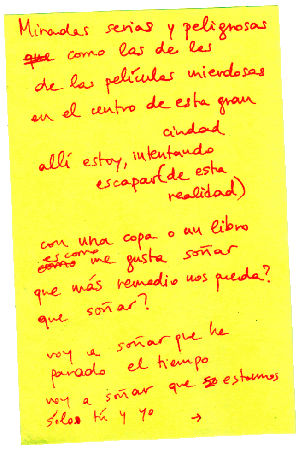 Miradas serias y peligrosas
que como las de las
de las películas mierdosas
en el centro de esta gran
ciudad
allí estoy, intentando
escapar (de esta
realidad)
con una copa o un libro
es como
como me gusta soñar
que más remedio nos queda?
que soñar?
voy a soñar que he
parado el tiempo
voy a soñar que so estamos
sólos tú y yo →